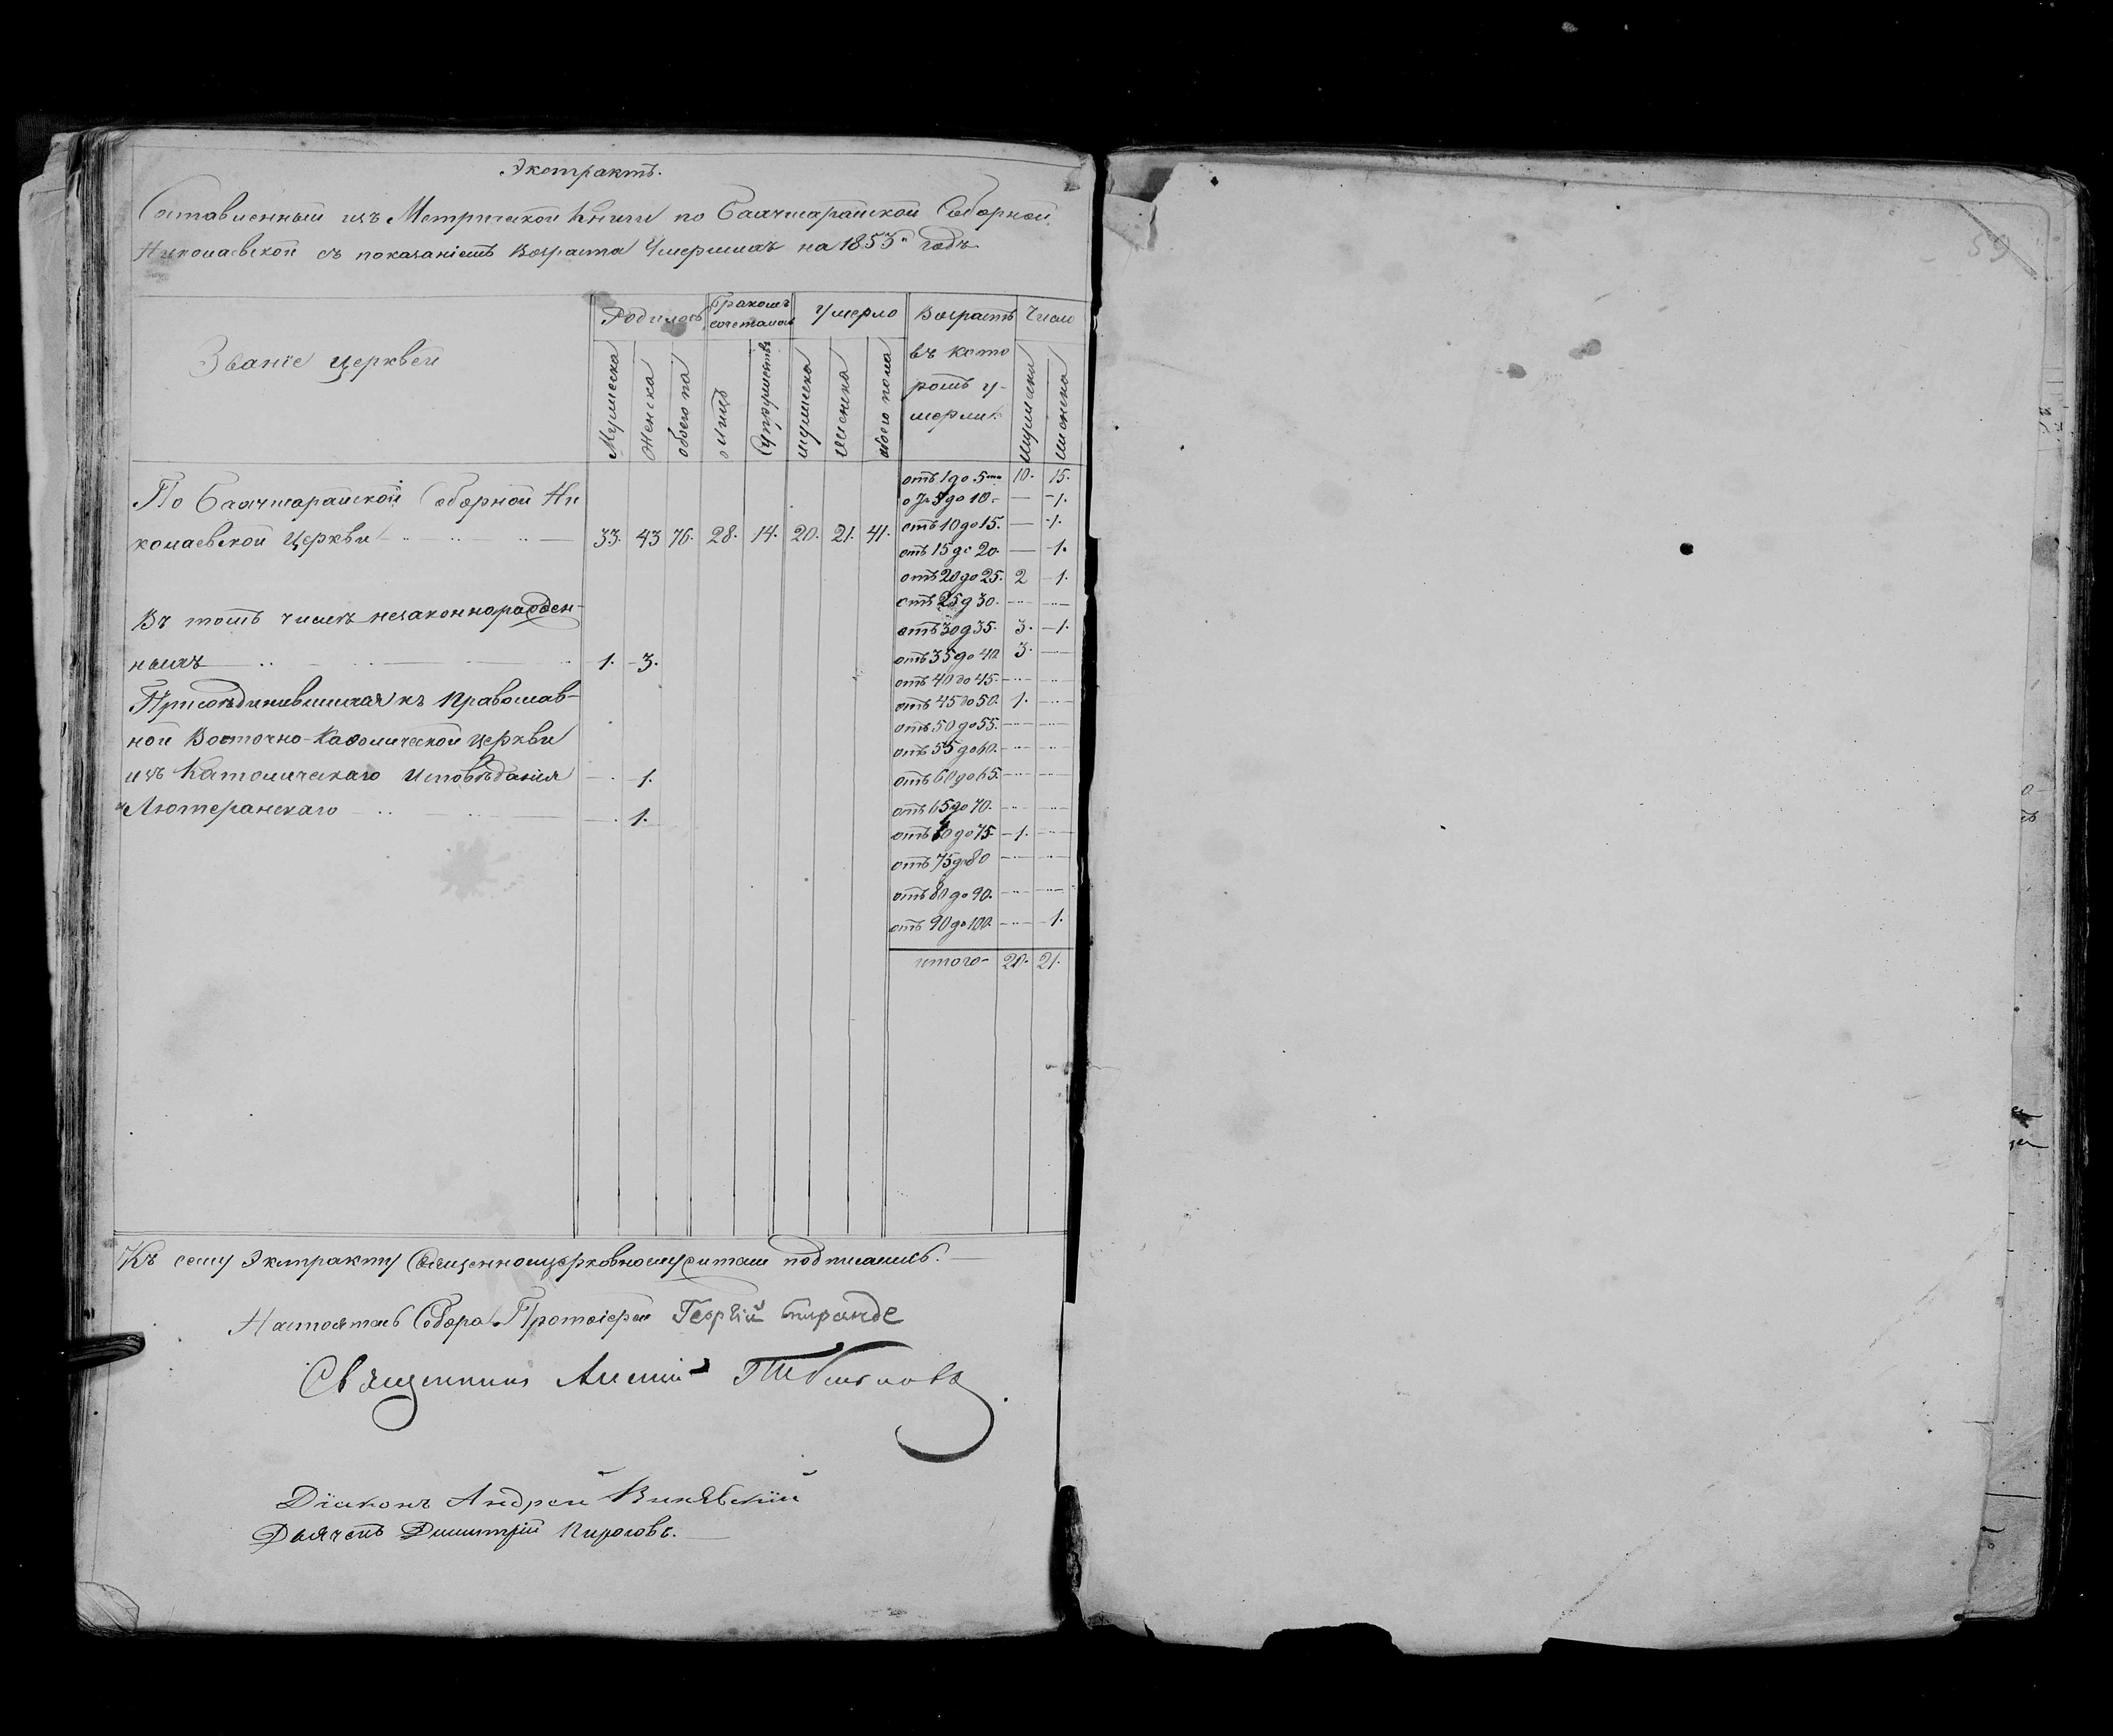 Экстрактъ.
Составленный изъ Метрической Книги по Бахчисарайской Соборной
Николаевской съ показаніемъ Возраста Умершихъ на 1853й годъ
Званіе церквей
Родилось
Бракомъ сочеталось
Умерло
Возрастъ
Число
въ кото
ромъ у-
мерли.
Мужеска
Женска
обоего по
лицъ
Супружествъ
мужеска
женска
обоего пола
мужеска
женска
По Бахчисарайской Соборной Ни
колаевской Церкви 33. 43 76. 28. 14. 20. 21. 41.
Въ томъ числѣ незаконнорожден-
ныхъ 1. 3.
Присоединившихся къ Православ-
ной Восточно-Каѳолической церкви
изъ Католическаго Исповѣданія 1.
и Лютеранскаго 1.
отъ 1 до 5ти 10. 15.
отъ 5 до 10. — 1.
отъ 10 до 15. — 1.
отъ 15 до 20. — 1.
отъ 20 до 25. 2 1.
отъ 25 д 30. — —
отъ 30 д 35. 3. 1.
отъ 35 до 40 3. —
отъ 40 до 45. — —
отъ 45 до 50. 1. —
отъ 50 до 55. — —
отъ 55 до 60. — —
отъ 60 до 65. — —
отъ 65 до 70. — —
отъ 70 до 75. 1. —
отъ 75 до 80 — —
отъ 80 до 90. — —
отъ 90 до 100. — 1.
итого 20. 21.
Къ сему Экстракту Священноцерковнослужители подписались.
Настоятель Собора Протоіерей Георгій
Священникъ
Діаконъ Андрей
Дьячекъ Димитрій Пироговъ.
59